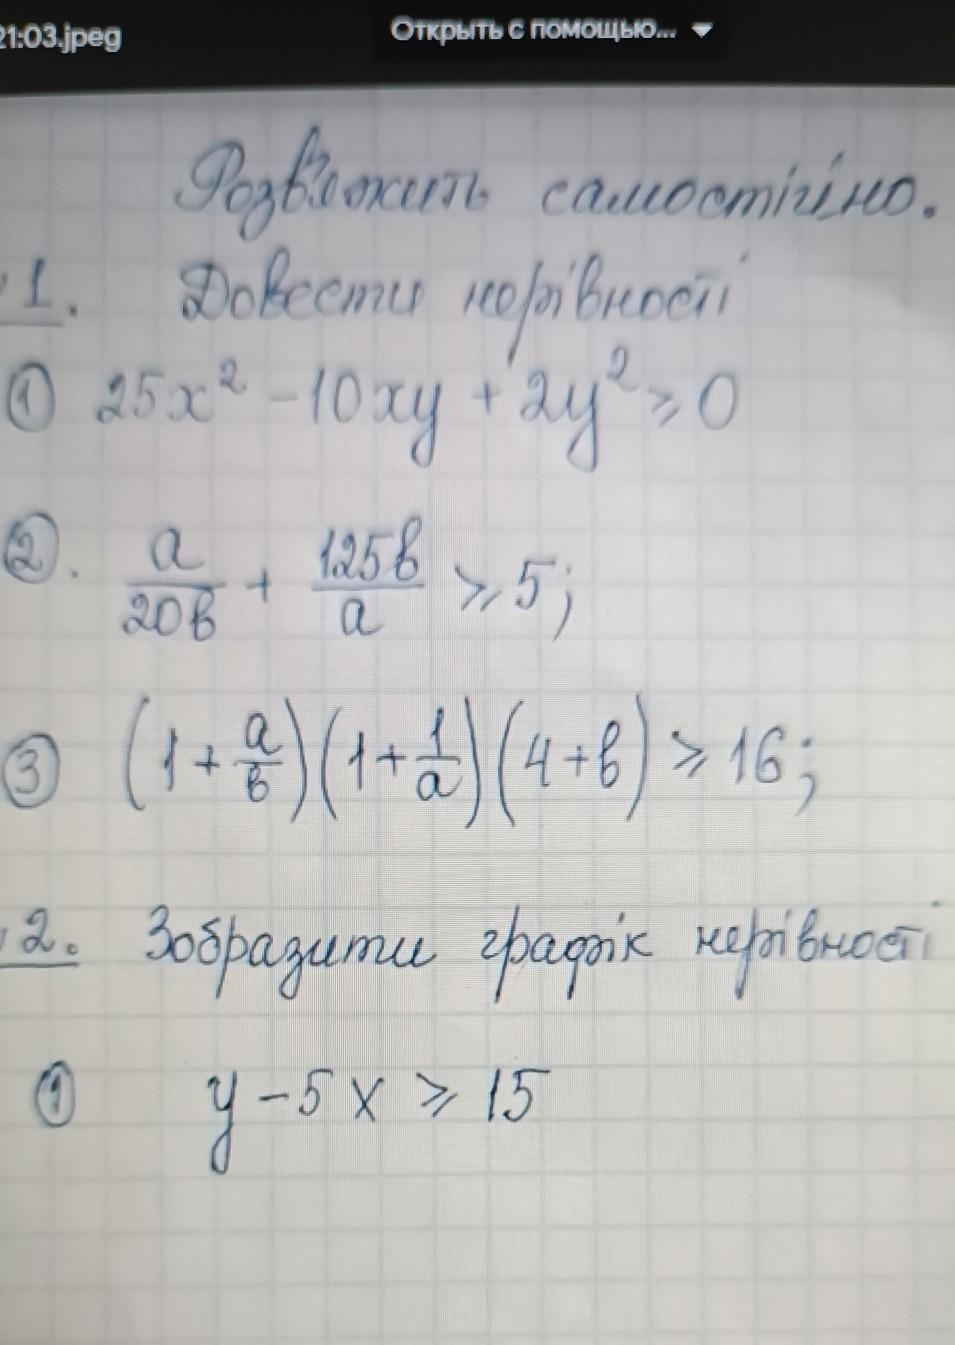 21:03.jpeg
Открыть с помощью...
Розв'яжить самостійно.
1. Довести нерівності
① 25x² - 10xy + 2y² ⩾ 0
②. a/20в + 125в/a ⩾ 5;
③ (1 + a/в)(1 + 1/a)(4 + в) ⩾ 16;
2. Зобразити графік нерівності
① y - 5x ⩾ 15